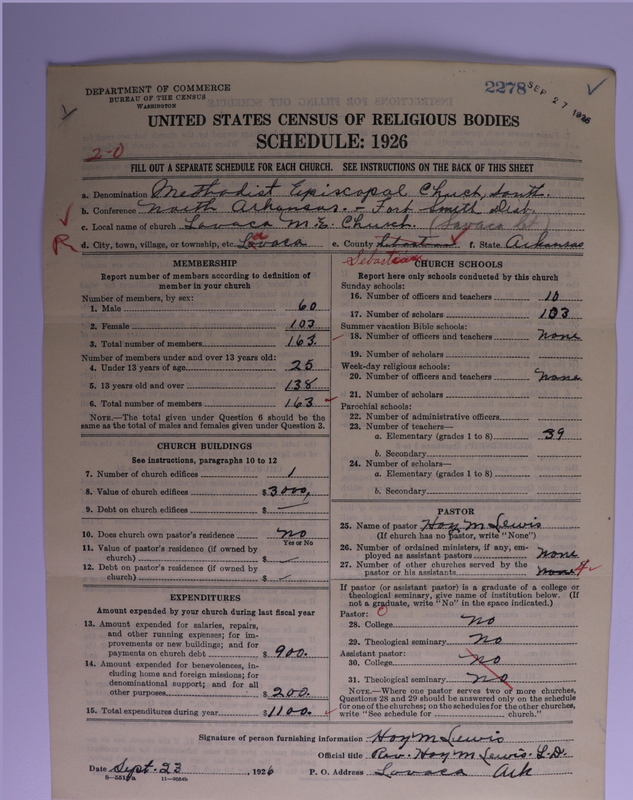 DEPARTMENT OF COMMERCE
BUREAU OF THE CENSUS
WASHINGTON
2278 SEP 27 1926
UNITED STATES CENSUS OF RELIGIOUS BODIES
SCHEDULE: 1926
2-0
FILL OUT A SEPARATE SCHEDULE FOR EACH CHURCH. SEE INSTRUCTIONS ON THE BACK OF THIS SHEET
a. Denomination Methodist Episcopal Church, South.
b. Conference North Arkansas. - Fort Smith Dist.
c. Local name of church Lavaca M. E. Church. (Lavaca
R d. City, town, village, or township, etc. Lavaca e. County Sebastian f. State Arkansas
Sebastian
MEMBERSHIP
Report number of members according to definition of
member in your church
Number of members, by sex:
1. Male 60
2. Female 103
3. Total number of members 163
Number of members under and over 13 years old:
4. Under 13 years of age 25
5. 13 years old and over 138
6. Total number of members 163
NOTE.—The total given under Question 6 should be the
same as the total of males and females given under Question 3.
CHURCH BUILDINGS
See instructions, paragraphs 10 to 12
7. Number of church edifices 1
8. Value of church edifices $ 3000,
9. Debt on church edifices $ —
10. Does church own pastor's residence no
Yes or No
11. Value of pastor's residence (if owned by
church) $
12. Debt on pastor's residence (if owned by
church) $
EXPENDITURES
Amount expended by your church during last fiscal year
13. Amount expended for salaries, repairs,
and other running expenses; for im-
provements or new buildings; and for
payments on church debt $ 900.
14. Amount expended for benevolences, in-
cluding home and foreign missions; for
denominational support; and for all
other purposes $ 200.
15. Total expenditures during year $ 1100.
CHURCH SCHOOLS
Report here only schools conducted by this church
Sunday schools:
16. Number of officers and teachers 10
17. Number of scholars 103
Summer vacation Bible schools:
18. Number of officers and teachers none
19. Number of scholars
Week-day religious schools:
20. Number of officers and teachers none
21. Number of scholars
Parochial schools:
22. Number of administrative officers
23. Number of teachers—
a. Elementary (grades 1 to 8) 39
b. Secondary
24. Number of scholars—
a. Elementary (grades 1 to 8)
b. Secondary
PASTOR
25. Name of pastor Hoy M Lewis
(If church has no pastor, write "None")
26. Number of ordained ministers, if any, em-
ployed as assistant pastors none
27. Number of other churches served by the
pastor or his assistants none 4
If pastor (or assistant pastor) is a graduate of a college or
theological seminary, give name of institution below. (If
not a graduate, write "No" in the space indicated.)
Pastor: 0
28. College no
29. Theological seminary no
Assistant pastor:
30. College no
31. Theological seminary no
NOTE.—Where one pastor serves two or more churches,
Questions 28 and 29 should be answered only on the schedule
for one of the churches; on the schedules for the other churches,
write "See schedule for church."
Signature of person furnishing information Hoy M Lewis
Official title Rev. Hoy M Lewis. L.D.
Date Sept. 23, 1926 P. O. Address Lavaca Ark